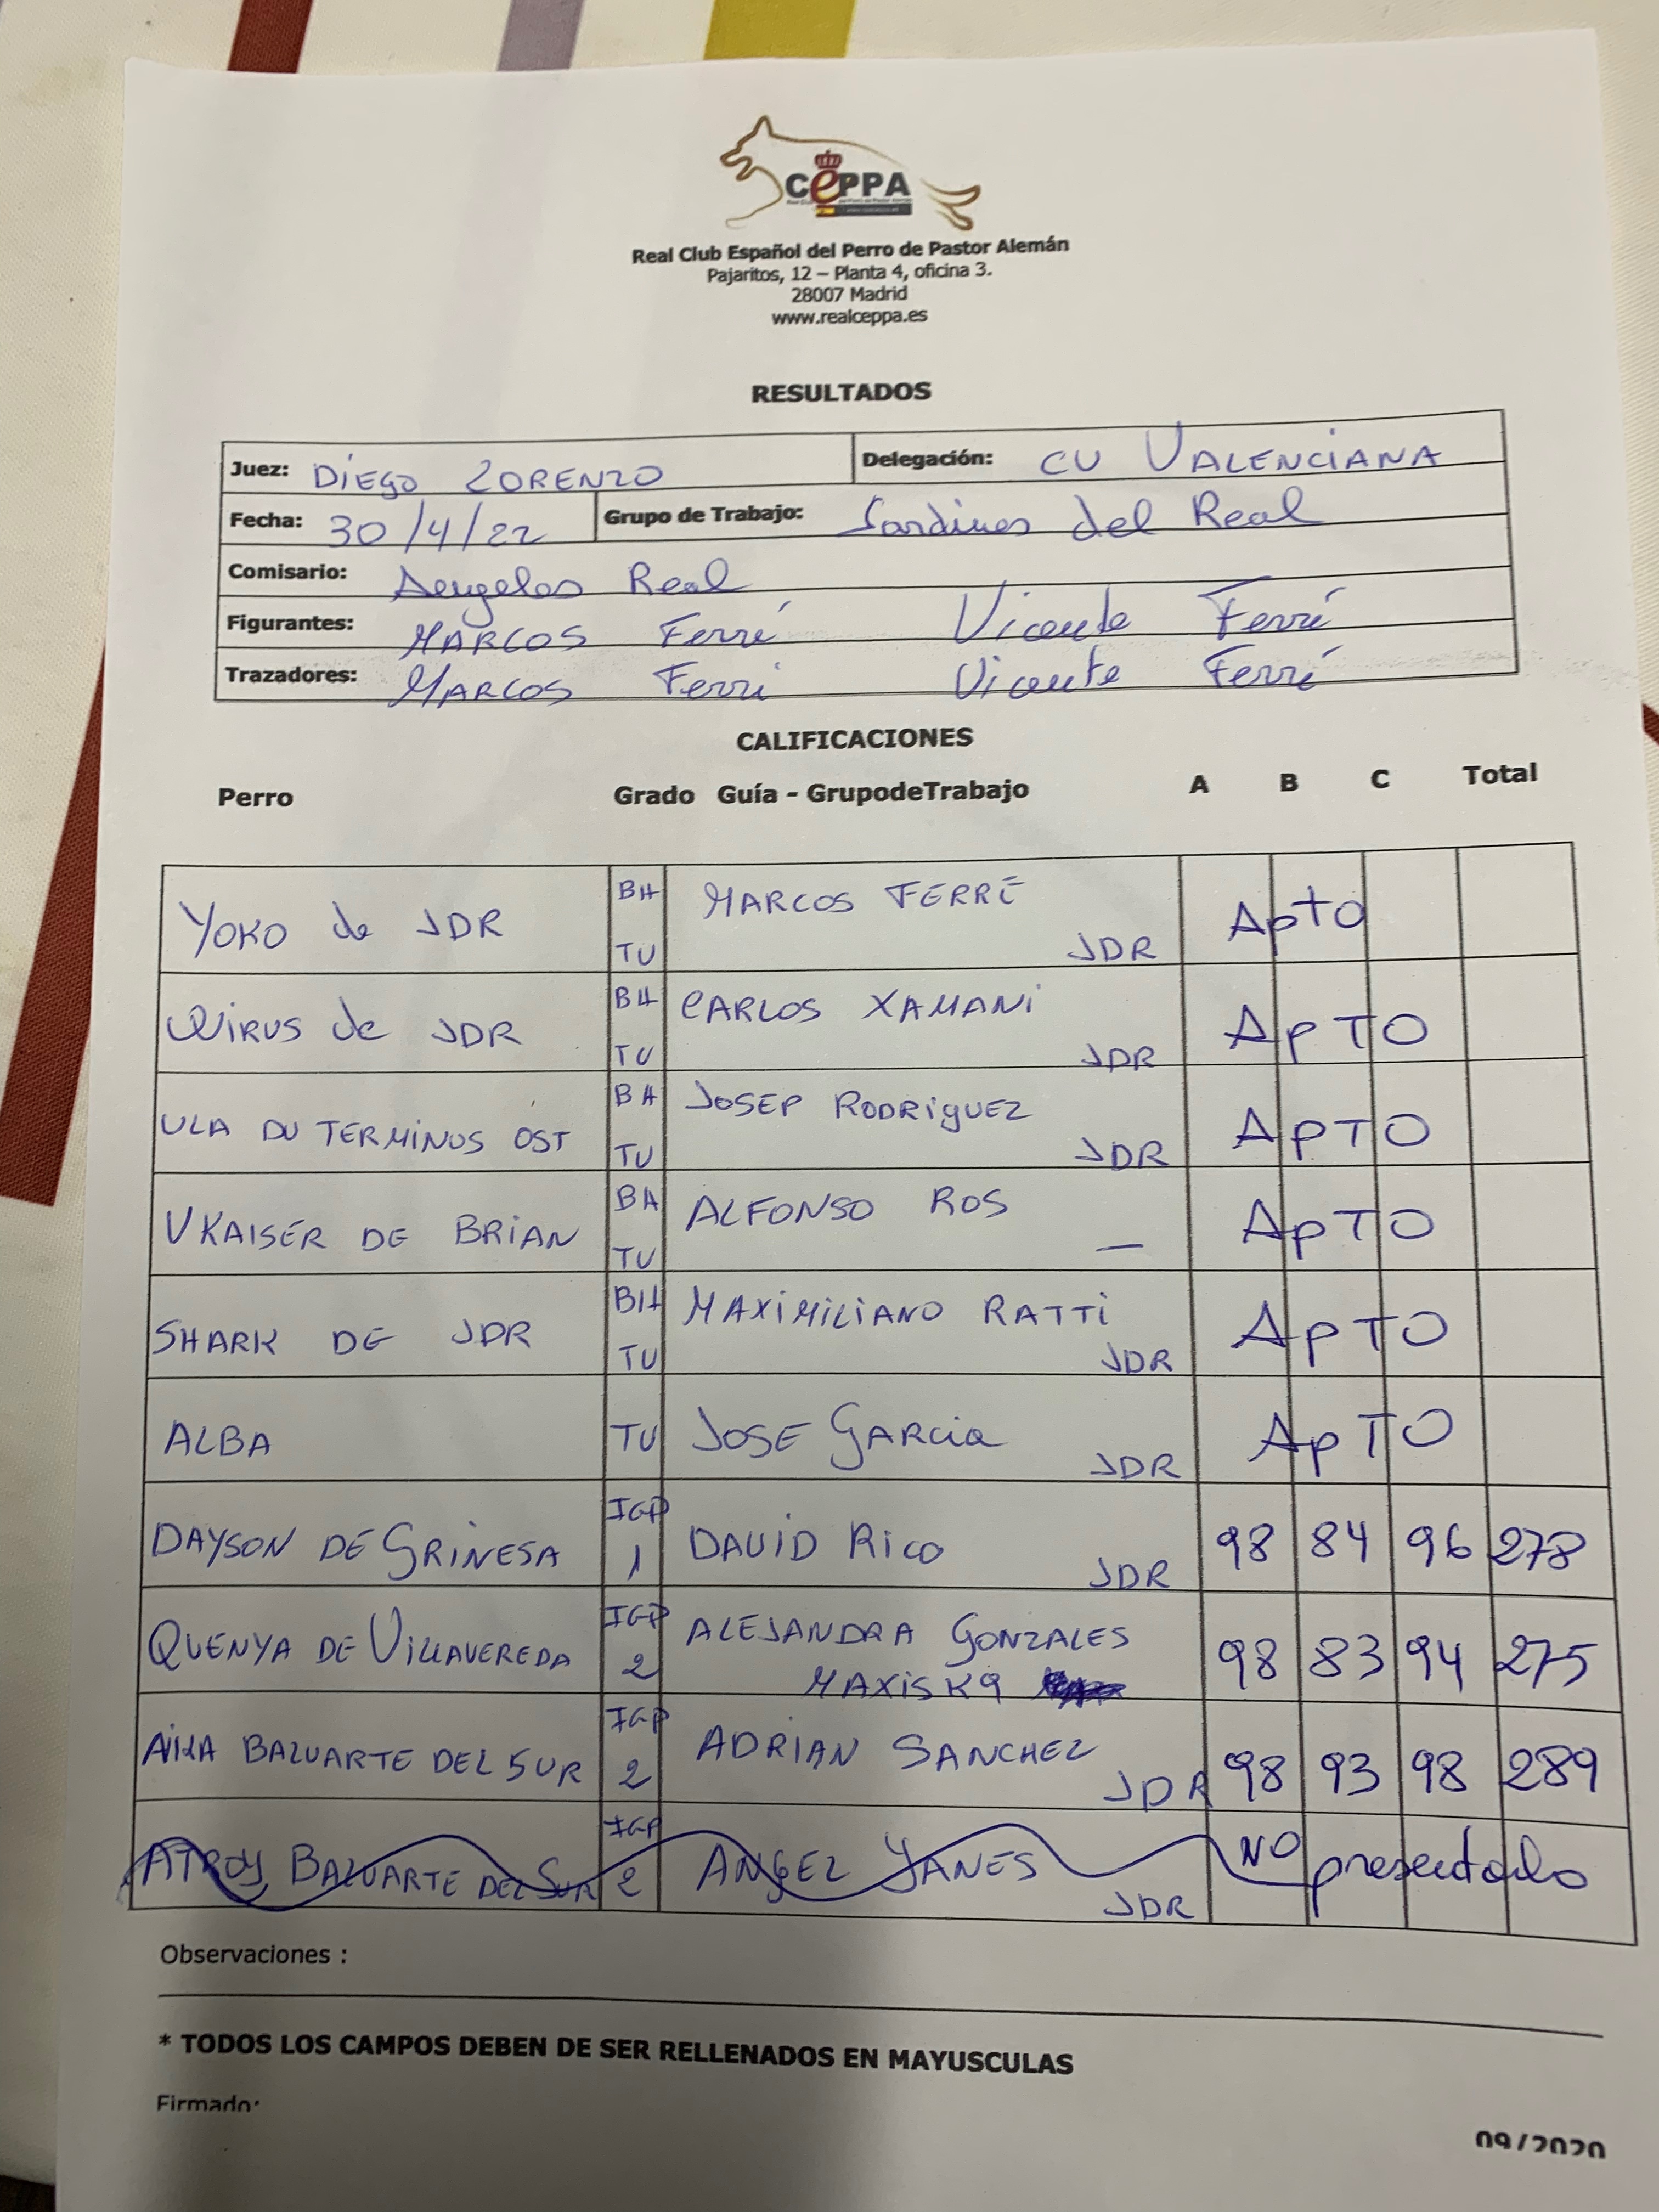 CePPA
Real Club Español del Perro de Pastor Alemán
Pajaritos, 12 – Planta 4, oficina 3.
28007 Madrid
www.realceppa.es
RESULTADOS
Juez: DIEGO LORENZO Delegación: CU VALENCIANA
Fecha: 30/4/22 Grupo de Trabajo: Jardines del Real
Comisario: Angeles Real
Figurantes: MARCOS Ferré Vicente Ferré
Trazadores: MARCOS Ferri Vicente Ferré
CALIFICACIONES
Perro Grado Guía - GrupodeTrabajo A B C Total
YOKO de JDR BH TU MARCOS FERRÉ JDR ApTO
WIRUS de JDR BH TU CARLOS XAMANI JDR ApTO
ULA DU TERMINUS OST BH TU JOSEP RODRIGUEZ JDR ApTO
VKAISER DE BRIAN BH TU ALFONSO ROS — ApTO
SHARK DE JDR BH TU MAXIMILIANO RATTI JDR ApTO
ALBA TU JOSE GARCIA JDR ApTO
DAYSON DE GRINESA IGP 1 DAVID RICO JDR 98 84 96 278
QUENYA DE VILLAVEREDA IGP 2 ALEJANDRA GONZALES MAXISK9 98 83 94 275
AIKA BALUARTE DEL SUR IGP 2 ADRIAN SANCHEZ JDR 98 93 98 289
ATROY BALUARTE DEL SUR IGP 2 ANGEL YANES JDR NO presentado
Observaciones :
* TODOS LOS CAMPOS DEBEN DE SER RELLENADOS EN MAYUSCULAS
Firmado:
09/2020